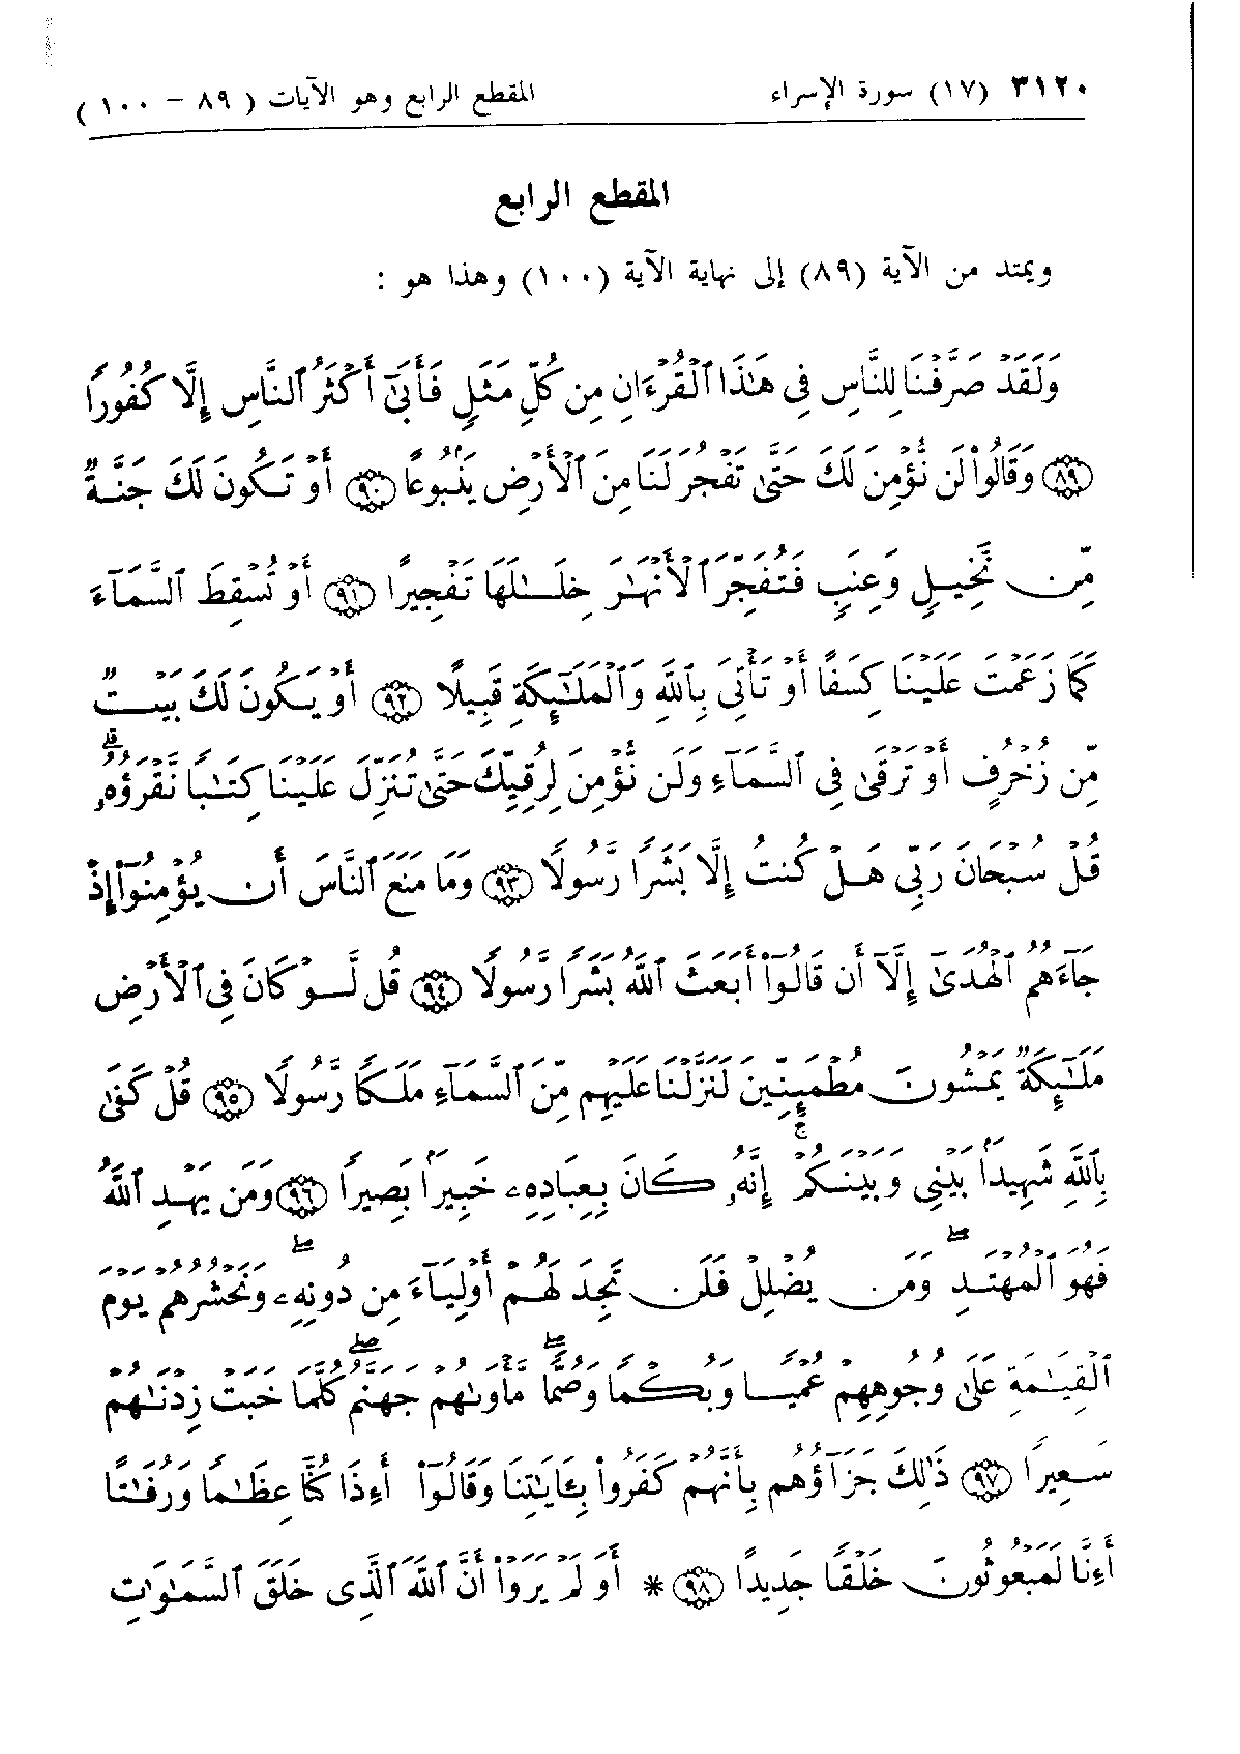 ٣١٢٠ (١٧) سورة الإسراء المقطع الرابع وهو الآيات ( ٨٩ – ١٠٠ )
المقطع الرابع
ويمتد من الآية (٨٩) إلى نهاية الآية (١٠٠) وهذا هو :
وَلَقَدْ صَرَّفْنَا لِلنَّاسِ فِي هَٰذَا ٱلْقُرْءَانِ مِن كُلِّ مَثَلٍ فَأَبَىٰٓ أَكْثَرُ ٱلنَّاسِ إِلَّا كُفُورًا
﴿٨٩﴾ وَقَالُواْ لَن نُّؤْمِنَ لَكَ حَتَّىٰ تَفْجُرَ لَنَا مِنَ ٱلْأَرْضِ يَنۢبُوعًا ﴿٩٠﴾ أَوْ تَكُونَ لَكَ جَنَّةٌ
مِّن نَّخِيلٍ وَعِنَبٍ فَتُفَجِّرَ ٱلْأَنْهَٰرَ خِلَٰلَهَا تَفْجِيرًا ﴿٩١﴾ أَوْ تُسْقِطَ ٱلسَّمَآءَ
كَمَا زَعَمْتَ عَلَيْنَا كِسَفًا أَوْ تَأْتِىَ بِٱللَّهِ وَٱلْمَلَٰٓئِكَةِ قَبِيلًا ﴿٩٢﴾ أَوْ يَكُونَ لَكَ بَيْتٌ
مِّن زُخْرُفٍ أَوْ تَرْقَىٰ فِى ٱلسَّمَآءِ وَلَن نُّؤْمِنَ لِرُقِيِّكَ حَتَّىٰ تُنَزِّلَ عَلَيْنَا كِتَٰبًا نَّقْرَؤُهُۥ ۗ
قُلْ سُبْحَانَ رَبِّى هَلْ كُنتُ إِلَّا بَشَرًا رَّسُولًا ﴿٩٣﴾ وَمَا مَنَعَ ٱلنَّاسَ أَن يُؤْمِنُوٓاْ إِذْ
جَآءَهُمُ ٱلْهُدَىٰٓ إِلَّآ أَن قَالُوٓاْ أَبَعَثَ ٱللَّهُ بَشَرًا رَّسُولًا ﴿٩٤﴾ قُل لَّوْ كَانَ فِى ٱلْأَرْضِ
مَلَٰٓئِكَةٌ يَمْشُونَ مُطْمَئِنِّينَ لَنَزَّلْنَا عَلَيْهِم مِّنَ ٱلسَّمَآءِ مَلَكًا رَّسُولًا ﴿٩٥﴾ قُلْ كَفَىٰ
بِٱللَّهِ شَهِيدًۢا بَيْنِى وَبَيْنَكُمْ ۚ إِنَّهُۥ كَانَ بِعِبَادِهِۦ خَبِيرًۢا بَصِيرًا ﴿٩٦﴾ وَمَن يَهْدِ ٱللَّهُ
فَهُوَ ٱلْمُهْتَدِ ۖ وَمَن يُضْلِلْ فَلَن تَجِدَ لَهُمْ أَوْلِيَآءَ مِن دُونِهِۦ ۖ وَنَحْشُرُهُمْ يَوْمَ
ٱلْقِيَٰمَةِ عَلَىٰ وُجُوهِهِمْ عُمْيًا وَبُكْمًا وَصُمًّا ۖ مَّأْوَىٰهُمْ جَهَنَّمُ ۖ كُلَّمَا خَبَتْ زِدْنَٰهُمْ
سَعِيرًا ﴿٩٧﴾ ذَٰلِكَ جَزَآؤُهُم بِأَنَّهُمْ كَفَرُواْ بِـَٔايَٰتِنَا وَقَالُوٓاْ أَءِذَا كُنَّا عِظَٰمًا وَرُفَٰتًا
أَءِنَّا لَمَبْعُوثُونَ خَلْقًا جَدِيدًا ﴿٩٨﴾ * أَوَ لَمْ يَرَوْاْ أَنَّ ٱللَّهَ ٱلَّذِى خَلَقَ ٱلسَّمَٰوَٰتِ